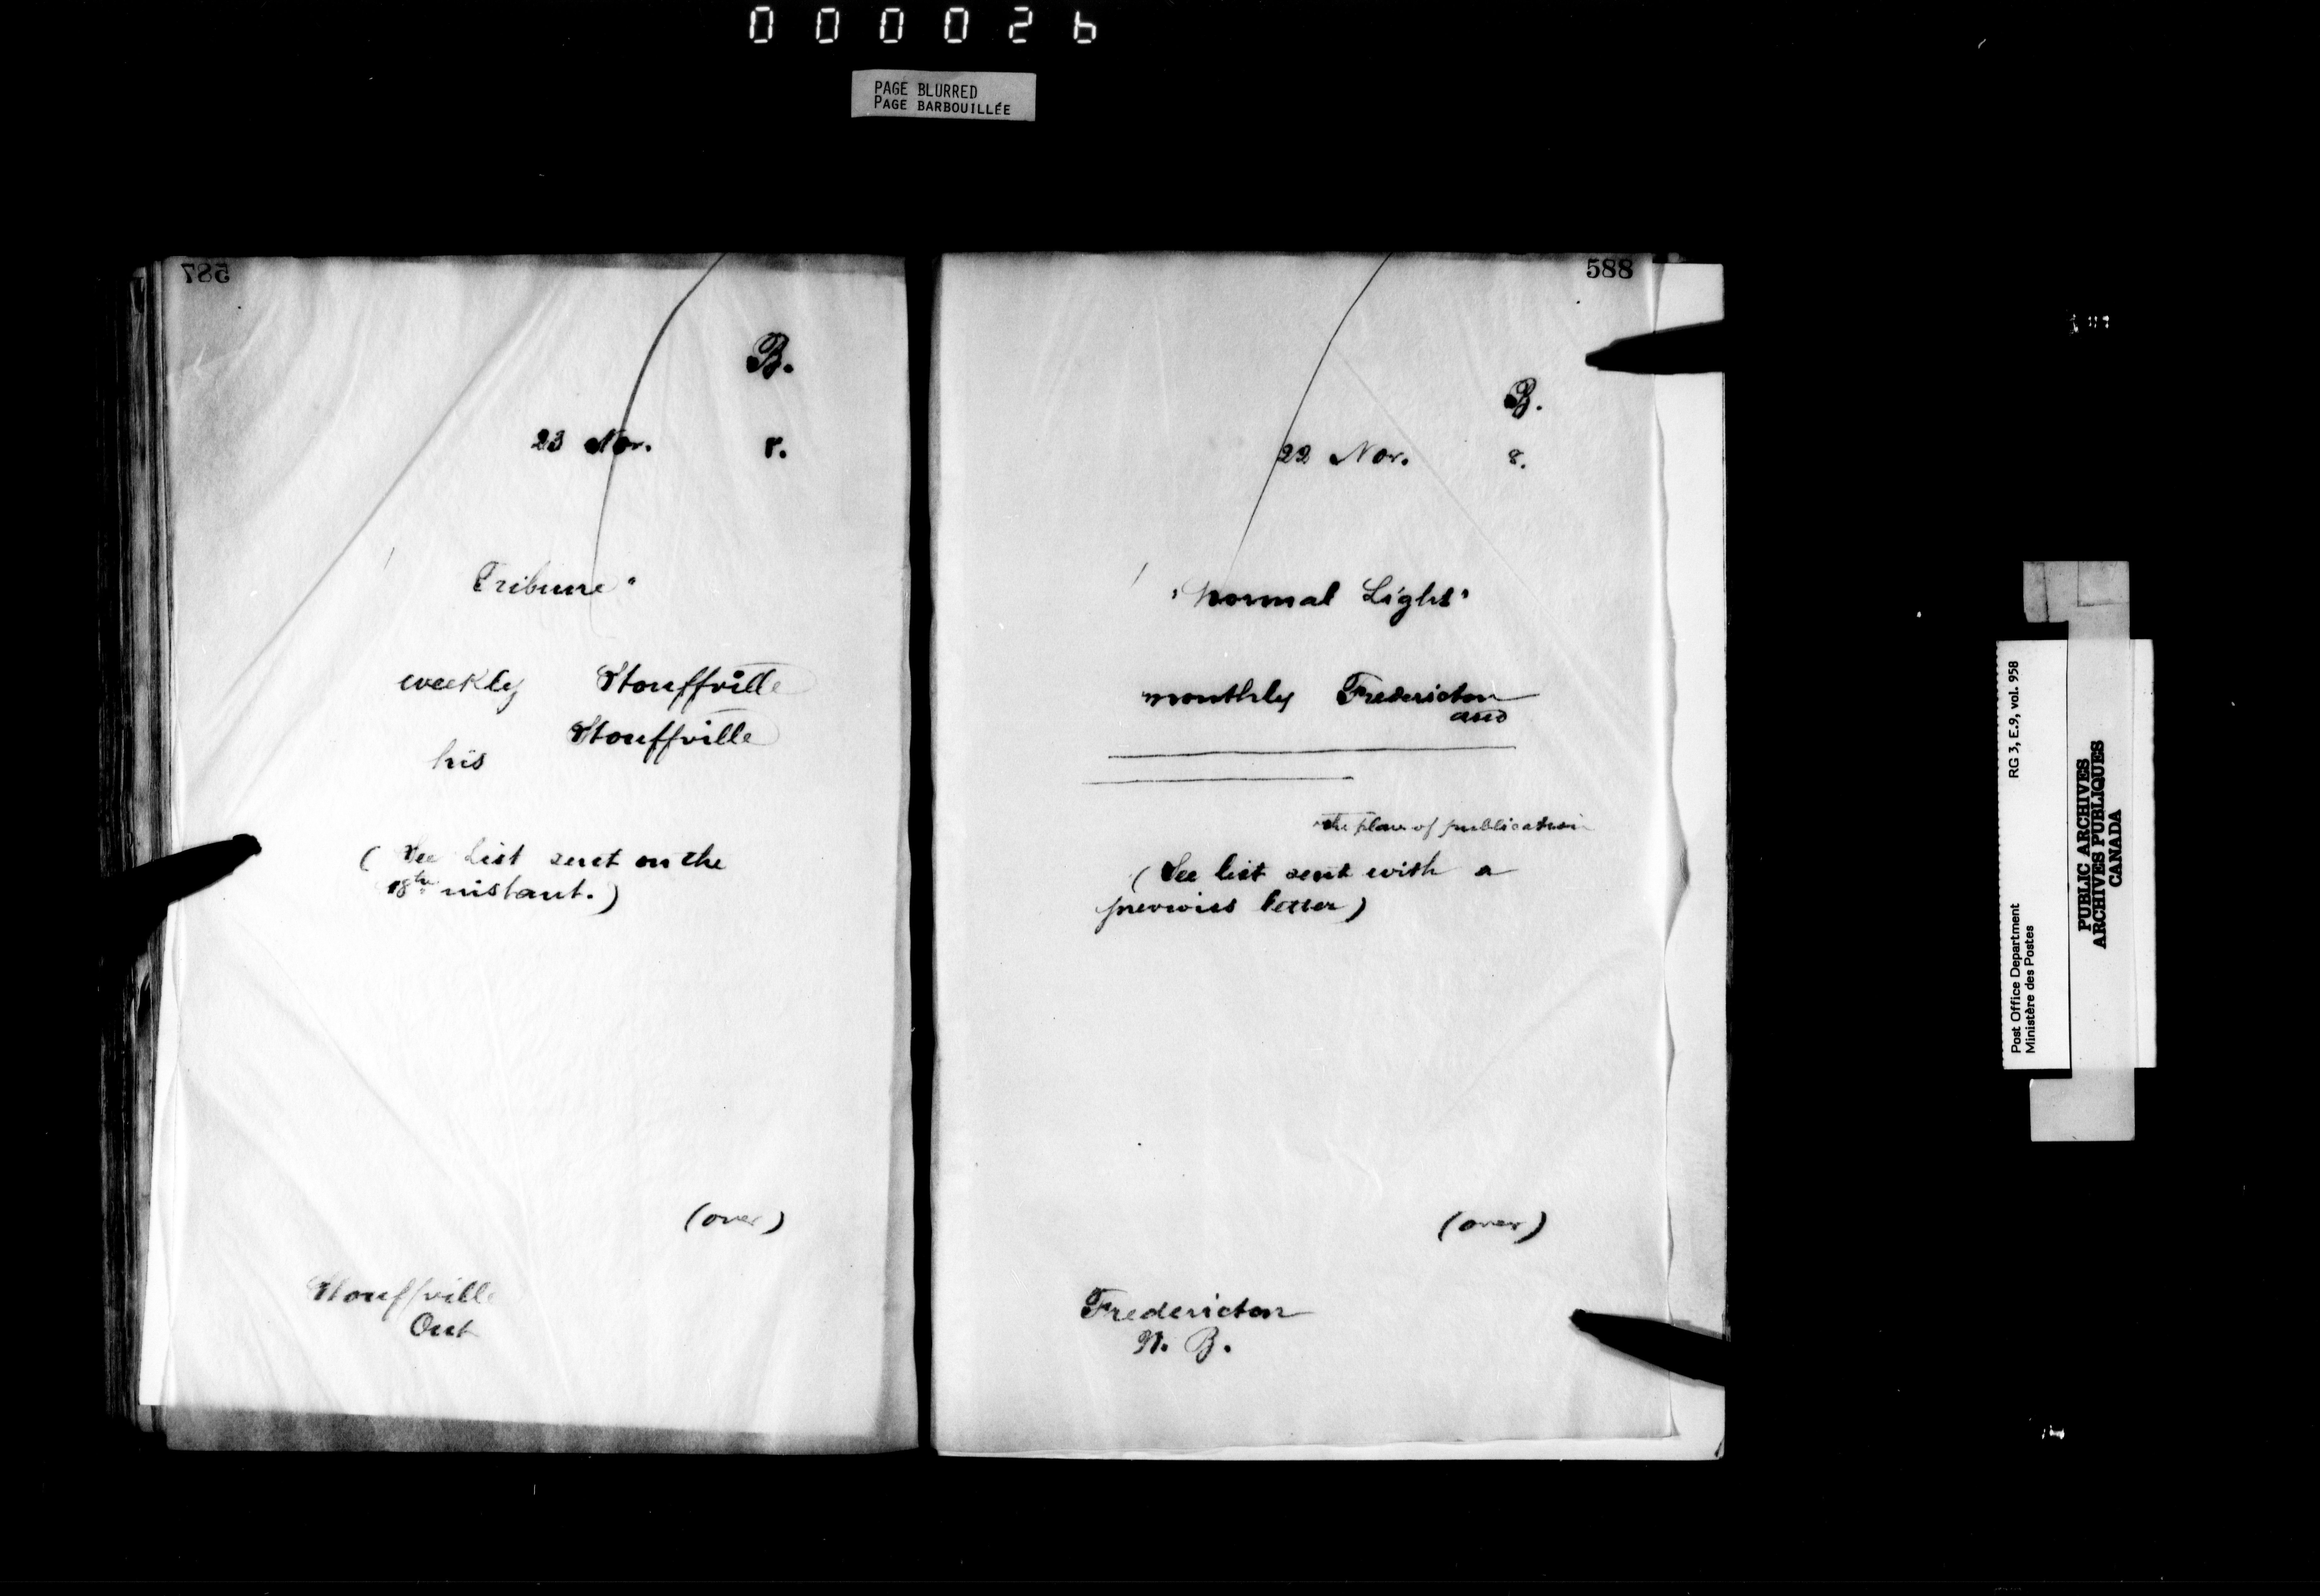 000026
PAGE BLURRED
PAGE BARBOUILLÉE
587
B.
23 Nov. 8.
Tribune"
weekly Stouffville
Stouffville
his
(See List sent on the
18th instant.)
(over)
Stouffville
Ont
588
B.
22 Nov. 8.
"Normal Light"
monthly Fredericton
and
the place of publication
(See list sent with a
previous letter)
(over)
Fredericton
N. B.
Post Office Department
Ministère des Postes
RG 3, E.9, vol. 958
PUBLIC ARCHIVES
ARCHIVES PUBLIQUES
CANADA